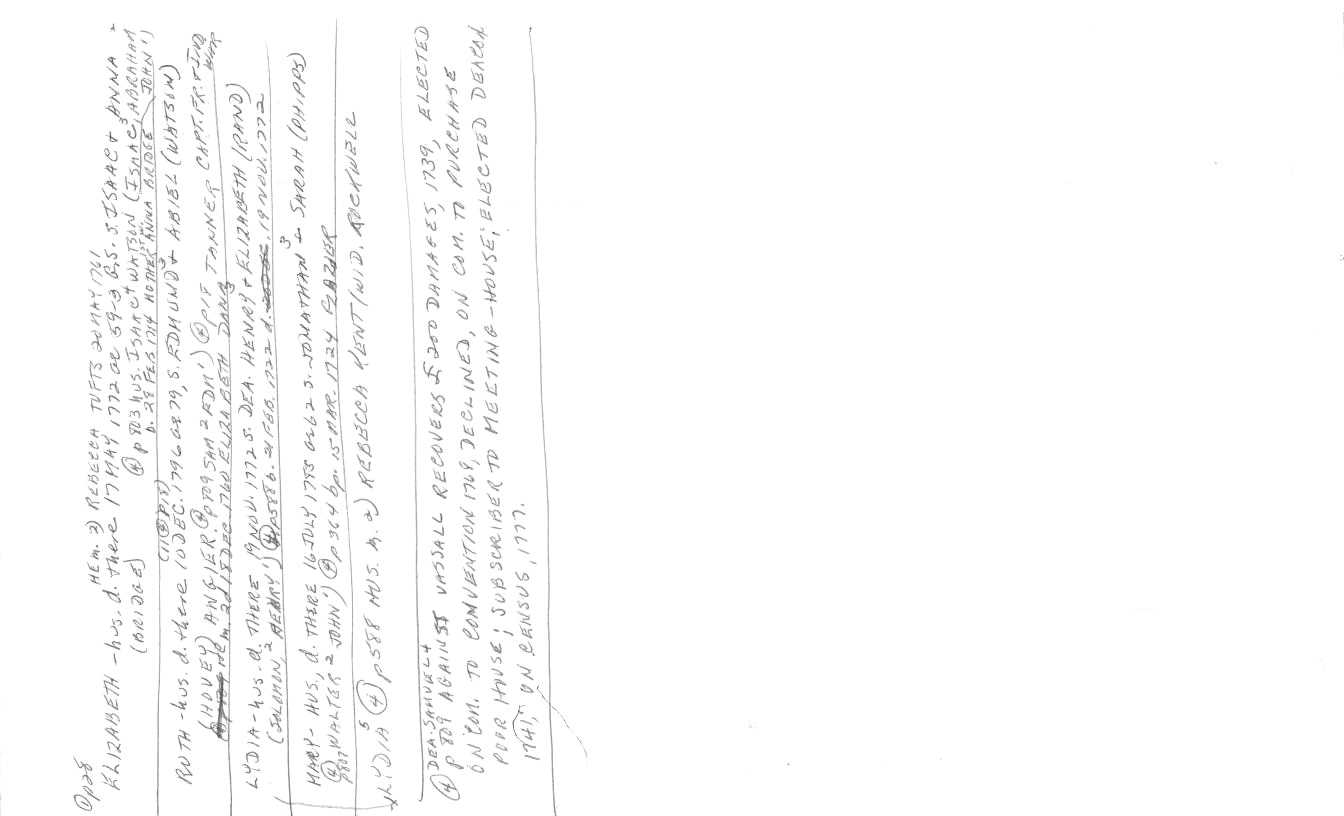 ① p28
HE m. 3) REBECCA TUFTS 20 MAY 1761
ELIZABETH - hus. d. there 17 MAY 1772 ae 59-3 G.S. S. ISAAC & ANNA
(BRIDGE) ④ p 803 HUS. ISAAC⁴ WATSON (ISAAC³, ABRAHAM
D. 28 FEB 1714 MOTHER ANNA BRIDGE JOHN¹)
(11 ② p18)
RUTH - hus. d. there 10 DEC. 1796 ae 79, S. EDMUND³ & ABIEL (WATSON)
(HOVEY) ANGIER. ④ p709 SAM² EDM¹) ④ p17 TANNER CAPT. FR. & IND WAR
HE m. 2d 18 DEC. 1760 ELIZABETH DANA³
LYDIA - hus. d. THERE 19 NOV. 1772 S. DEA. HENRY & ELIZABETH (RAND)
(SOLOMON,² HENRY¹) ④ p588 b. 21 FEB. 1722 d. 19 NOV. 1772
MARY - HUS, d. THERE 16 JULY 1753 ae 62 S. JONATHAN³ & SARAH (PHIPPS)
④ p807 WALTER² JOHN¹) ④ p364 bp. 15 MAR. 1724 GLAZIER
*LYDIA⁵ ④ p588 HUS. m. 2) REBECCA KENT (WID. ROCKWELL
DEA. SAMUEL⁴
④ p 809 AGAINST VASSALL RECOVERS £ 200 DAMAGES, 1739, ELECTED
ON COM. TO CONVENTION 1769, DECLINED, ON COM. TO PURCHASE
POOR HOUSE; SUBSCRIBER TO MEETING-HOUSE; ELECTED DEACON
1741, ON CENSUS, 1777.